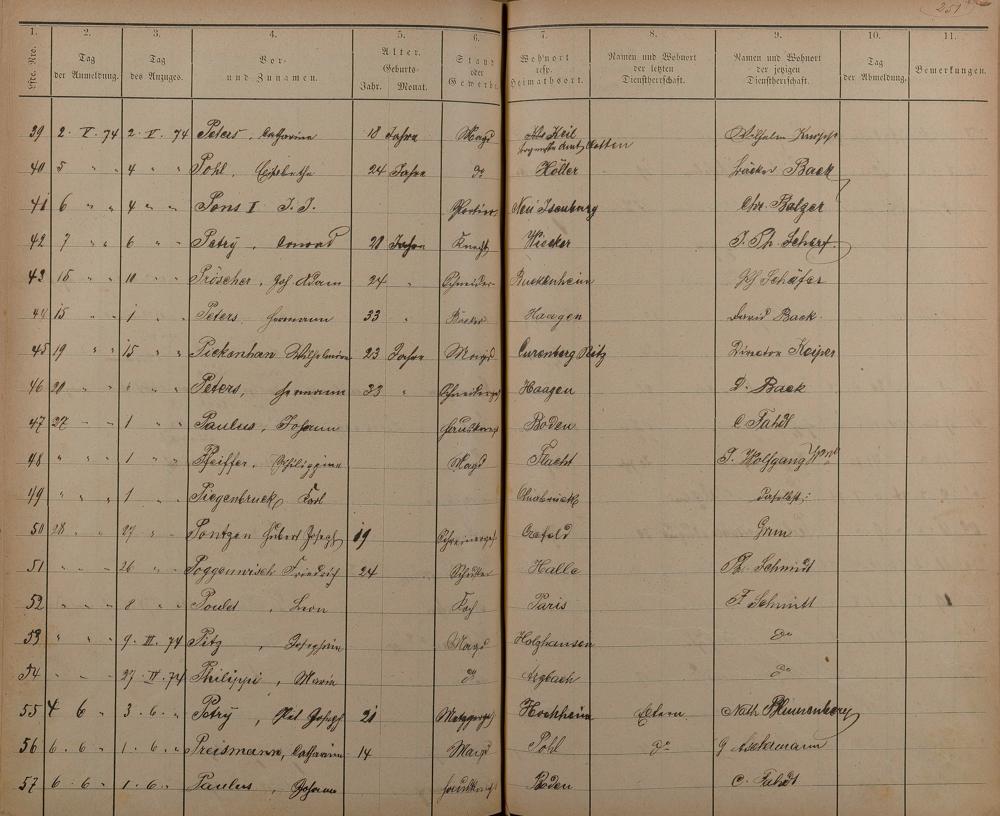 251
1. 2. 3. 4. 5. 6. 7. 8. 9. 10. 11.
Lfde. Nro. Tag der Anmeldung. Tag des Anzuges. Vor- und Zunamen. Alter. Geburts- Jahr. Monat. Stand oder Gewerbe. Wohnort resp. Heimathsort. Namen und Wohnort der letzten Dienstherrschaft. Namen und Wohnort der jetzigen Dienstherrschaft. Tag der Abmeldung. Bemerkungen.
39 2. V. 74 2. V. 74 Peters, Catharina 18 Jahre Magd Wilhelm
40 5 " " 4 " " Pohl, 24 Jahre do Höller Bäcker Back
41 6 " " 4 " " Pons I J. J. Portier Neu Isenburg Chr. Balzer
42 7 " " 6 " " Petry, Conrad 28 Jahre Knecht Wicker J. Ph. Scherf
43 15 " " 10 " " Pröscher, Joh Adam 24 " Schneider Ruckenheim Schäfer
44 15 " " 1 " " Peters, Hermann 33 " Bäcker Haagen David Back
45 19 " " 15 " " Pickenhan, Wilhelmine 23 Jahre Magd Director Keiper
46 20 " " " " " Peters, Hermann 33 " Haagen D. Back
47 27 " " 1 " " Paulus, Johann Hausknecht Boden C Fahdt
48 " " " 1 " " Pfeiffer, Philippine Magd Flacht J. Wolfgang
49 " " " 1 " " Ziegenbruck, Karl Osnabrück daselbst
50 28 " " 27 " " Pontzen Hubert Joseph 19 Schreinerges Crefeld Grim
51 " " " 26 " " Poggenwisch Friedrich 24 Schuster Halle Ph. Schmidt
52 " " " 8 " " Poulet, Leon Koch Paris F. Schmitt
53 " " " 9. III. 74 Pitz, Josephine Magd Holzhausen do
54 " " " 27. IV. 74 Philippi, Maria do Arzbach do
55 4 6 " 3. 6. " Petry, Joseph 21 Metzgerges Hochheim Eltern Nath. Blumenberg
56 6. 6. " 1. 6. " Preismann, Catharina 14 Magd Pohl do Aschmann
57 6. 6. " 1. 6. " Paulus, Johann Hausknecht Boden C. Fahdt